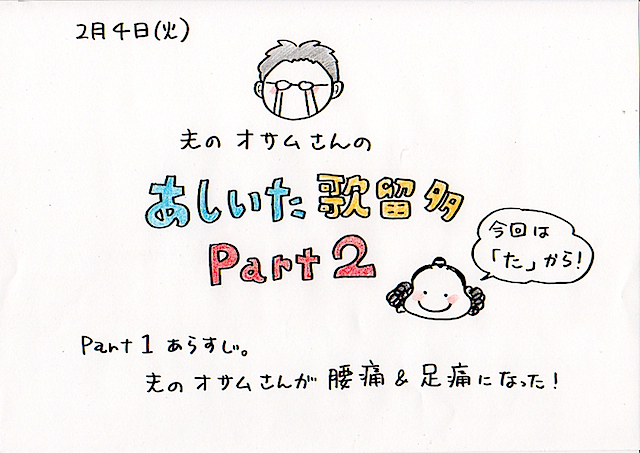 2月4日(火)
夫のオサムさんの
あしいた歌留多
Part2
今回は
「た」から!
Part1あらすじ。
夫のオサムさんが腰痛&足痛になった!